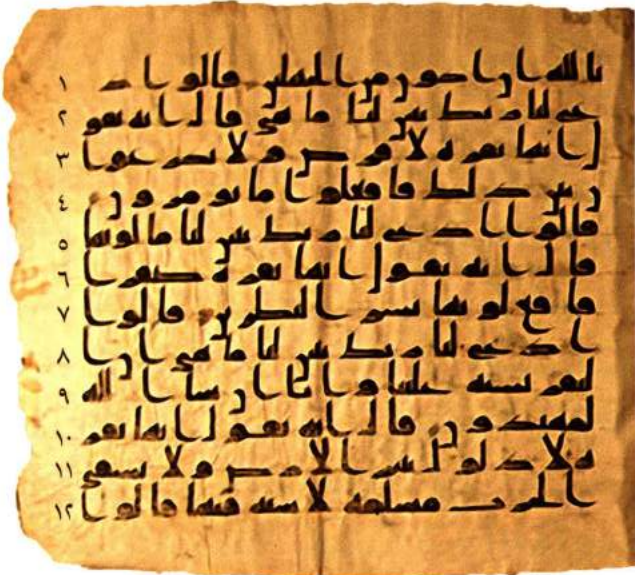 بالله ان اكون من الجهلين قالوا اد ١
ع لنا ربك يبين لنا ما هي قال انه يقو ٢
ل انها بقرة لا فرض ولا بكر عوا ٣
ن بين ذلك فافعلوا ما تومرون ٤
قالوا ادع لنا ربك يبين لنا ما لونها ٥
قال انه يقول انها بقرة صفرا ٦
فاقع لونها تسر النظرين قالوا ٧
ادع لنا ربك يبين لنا ما هي ان ا ٨
لبقر تشبه علينا وانا ان شا الله ٩
لمهتدون قال انه يقول انها بقر ١٠
ة لا ذلول تثير الارض ولا تسقي ١١
الحرث مسلمة لا شية فيها قالوا ١٢